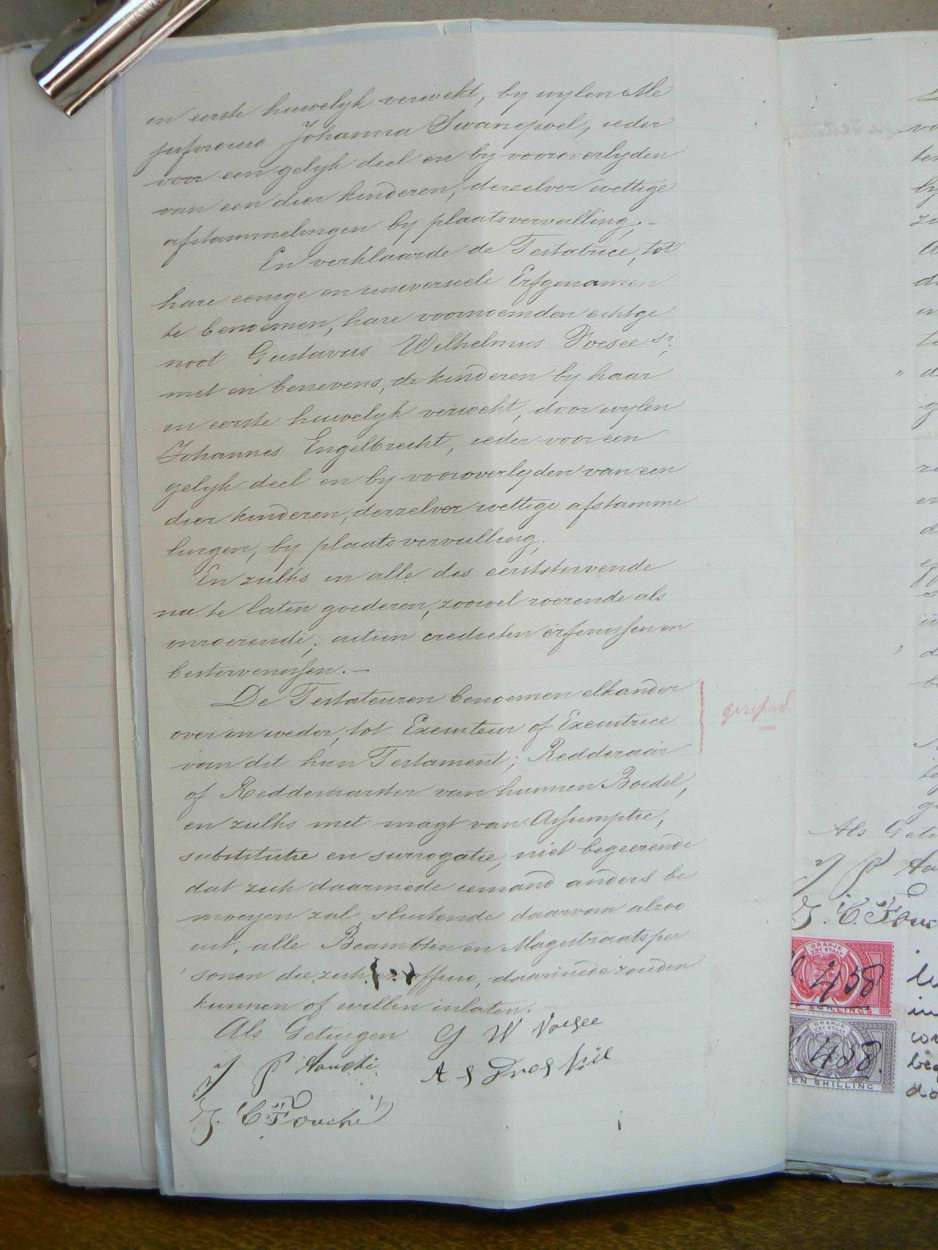 in eerste huwelyk verwekt, by wylen Me
jufvrouw Johanna Swanepoel, ieder
voor een gelyk deel en by vooroverlyden
van een dier kinderen, derzelver wettige
afstammelingen by plaatsvervulling.—
En verklaarde de Testatrice, tot
hare eenige en universele Erfgenamen
te benoemen, hare voornoemden echtge
noot Gustavus Wilhelmus Voesee Sr,
met en benevens, de kinderen by haar
in eerste huwelyk verwekt, door wylen
Johannes Engelbrecht, ieder voor een
gelyk deel en by vooroverlyden van een
dier kinderen, derzelver wettige afstamme
lingen, by plaatsvervulling.
En zulks in alle des eerststervende
na te laten goederen, zoowel roerende als
onroerende, actien credieten erfenissen en
bestervenissen.—
De Testateuren benoemen elkander
over en weder, tot Executeur of Executrice
van dit hun Testament; Redderaar
of Redderaarster van hunnen Boedel,
en zulks met magt van Assumptie,
substitutie en surrogatie, niet begeerende
dat zich daarmede iemand anders be
moeyen zal, sluitende daarvan alzoo
uit, alle Beambten en Magistraatsper
sonen die zich ex officio, daarmede zouden
kunnen of willen inlaten.
Als Getuigen G W Voesee
J P Fouché
J. C Fouché
Als Getu
J P
J. C Fouc
ORANJE
VRY STAAT
458
SHILLINGS
ORANJE
VRY STAAT
488
SHILLING